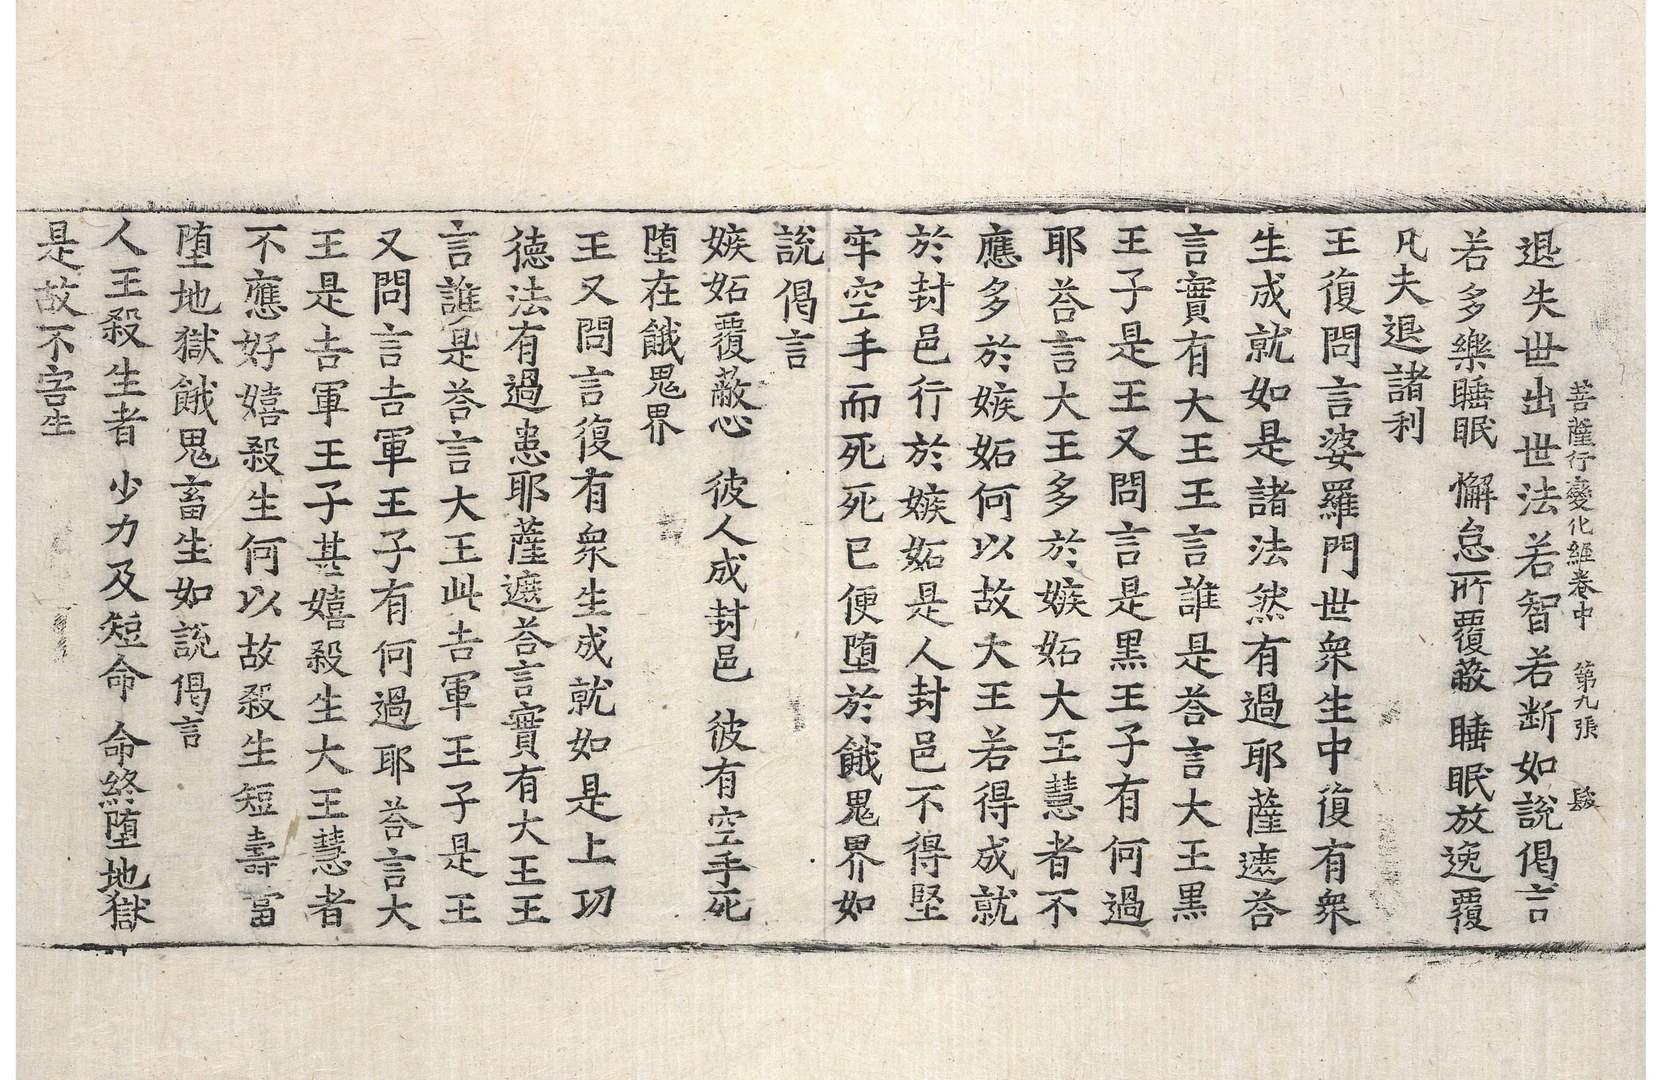 菩薩行變化經卷中 第九張 髮
退失世出世法若智若断如說偈言
若多樂睡眠 懈怠所覆蔽 睡眠放逸覆
凡夫退諸利
王復問言婆羅門世衆生中復有衆
生成就如是諸法然有過耶薩遮荅
言實有大王王言誰是荅言大王黑
王子是王又問言是黑王子有何過
耶荅言大王多於嫉妬大王慧者不
應多於嫉妬何以故大王若得成就
於封邑行於嫉妬是人封邑不得堅
牢空手而死死已便墮於餓鬼界如
說偈言
嫉妬覆蔽心 彼人成封邑 彼有空手死
墮在餓鬼界
王又問言復有衆生成就如是上功
德法有過患耶薩遮荅言實有大王王
言誰是荅言大王此吉軍王子是王
又問言吉軍王子有何過耶荅言大
王是吉軍王子甚嬉殺生大王慧者
不應好嬉殺生何以故殺生短壽當
墮地獄餓鬼畜生如說偈言
人王殺生者 少力及短命 命終墮地獄
是故不害生